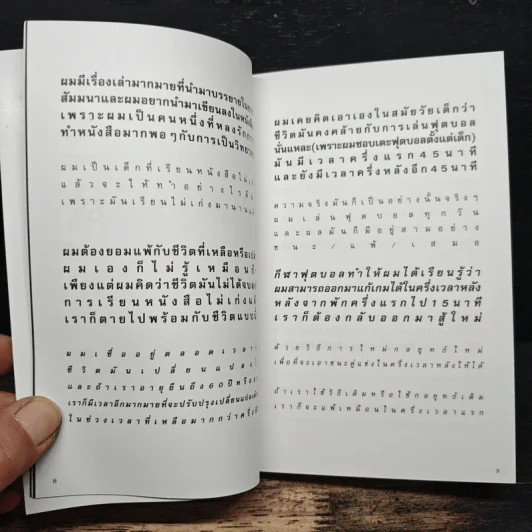 ผมมีเรื่องเล่ามากมายที่นำมาบรรยายใน
สัมมนาและผมอยากนำมาเขียนลงใน
เพราะผมเป็นคนหนึ่งที่หลง
ทำหนังสือมากพอๆกับการเป็น
ผมเป็นเด็กที่เรียนหนังสือ
แล้วจะให้ทำอย่างไร
เพราะมันเรียนไม่เก่งมานาน
ผมต้องยอมแพ้กับชีวิตที่เหลือหรือ
ผมเองก็ไม่รู้เหมือน
เพียงแต่ผมคิดว่าชีวิตมันไม่ได้จบ
การเรียนหนังสือไม่เก่ง
เราก็ตายไปพร้อมกับชีวิตแบบ
ผมเชื่ออยู่ตลอดเวลา
ชีวิตมันเปลี่ยนแปลง
และถ้าเราอายุยืนถึง60ปีหรือ
เราก็มีเวลาอีกมากมายที่จะปรับปรุงเปลี่ยนแปลง
ในช่วงเวลาที่เหลือมากกว่าครึ่ง
8
ผมเคยคิดเอาเองในสมัยวัยเด็กว่า
ชีวิตมันคงคล้ายกับการเล่นฟุตบอล
นั่นแหละ(เพราะผมชอบเตะฟุตบอลตั้งแต่เด็ก)
มันมีเวลาครึ่งแรก45นาที
และยังมีเวลาครึ่งหลังอีก45นาที
ความจริงมันก็เป็นอย่างนั้นจริงๆ
ผมเล่นฟุตบอลทุกวัน
และผลมันก็มีอยู่สามอย่าง
ชนะ/แพ้/เสมอ
กีฬาฟุตบอลทำให้ผมได้เรียนรู้ว่า
ผมสามารถออกมาแก้เกมได้ในครึ่งเวลาหลัง
หลังจากพักครึ่งแรกไป15นาที
เราก็ต้องกลับออกมาสู้ใหม่
ด้วยวิธีการใหม่กลยุทธ์ใหม่
เพื่อที่จะเอาชนะคู่แข่งในครึ่งเวลาหลังให้ได้
ถ้าเราใช้วิธีเดิมหรือใช้กลยุทธ์เดิม
เราก็จะแพ้เหมือนในครึ่งเวลาแรก
9